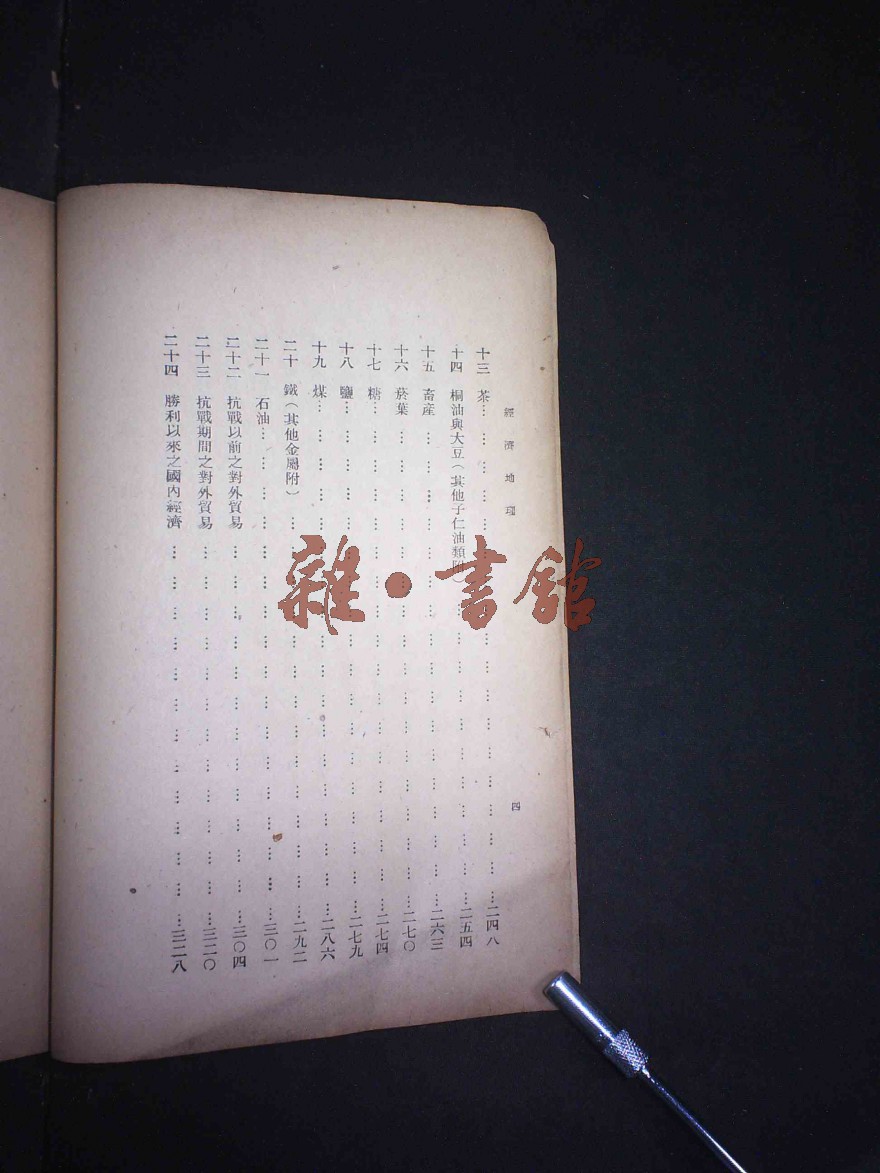 經濟地理
四
十三 茶……………………………二四八
十四 桐油與大豆(其他子仁油類附)……………………………二五四
十五 畜產……………………………二六三
十六 菸葉……………………………二七〇
十七 糖……………………………二七四
十八 鹽……………………………二七九
十九 煤……………………………二八六
二十 鐵(其他金屬附)……………………………二九二
二十一 石油……………………………三〇一
二十二 抗戰以前之對外貿易……………………………三〇四
二十三 抗戰期間之對外貿易……………………………三二〇
二十四 勝利以來之國內經濟……………………………三二八
雜·書館